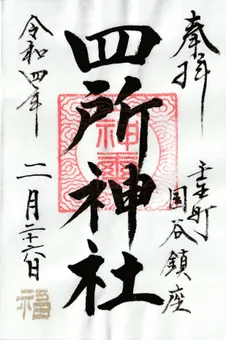 奉拝
国谷鎮座
四所神社
令和四年
二月二十六日
福